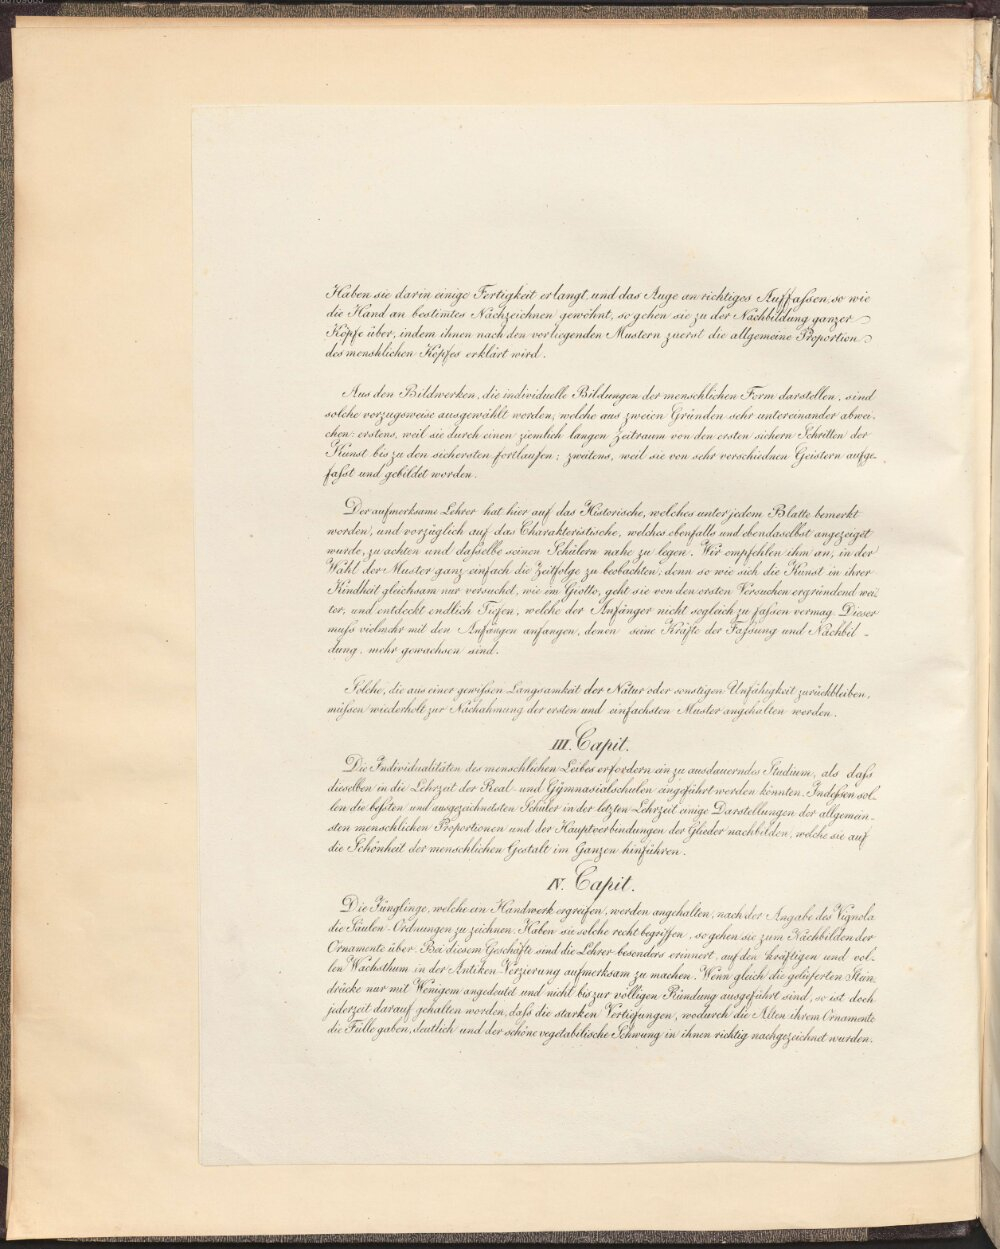 Haben sie darin einige Fertigkeit erlangt, und das Auge an richtiges Auffaßen, so wie
die Hand an bestimtes Nachzeichnen gewöhnt, so gehen sie zu der Nachbildung ganzer
Köpfe über, indem ihnen nach den vorliegenden Mustern zuerst die allgemeine Proportion
des menshlichen Kopfes erklärt wird.
Aus den Bildwerken, die individuelle Bildungen der menschlichen Form darstellen, sind
solche vorzugsweise ausgewählt worden, welche aus zweien Gründen sehr untereinander abwei-
chen: erstens, weil sie durch einen ziemlich langen Zeitraum von den ersten sichern Schritten der
Kunst bis zu den sichersten fortlaufen; zweitens, weil sie von sehr verschiednen Geistern aufge-
faßt und gebildet worden.
Der aufmerksame Lehrer hat hier auf das Historische, welches unter jedem Blatte bemerkt
worden, und vorzüglich auf das Charakteristische, welches ebenfalls und ebendaselbst angezeiget
wurde, zu achten und daßelbe seinen Schülern nahe zu legen. Wir empfehlen ihm an, in der
Wahl der Muster ganz einfach die Zeitfolge zu beobachten; denn so wie sich die Kunst in ihrer
Kindheit gleichsam nur versuchet, wie im Giotto, geht sie von den ersten Versuchen ergründend wei
ter, und entdeckt endlich Tiefen, welche der Anfänger nicht sogleich zu faßen vermag. Dieser
muß vielmehr mit den Anfängen anfangen, denen seine Kräfte der Faßung und Nachbil-
dung, mehr gewachsen sind.
Solche, die aus einer gewißen Langsamkeit der Natur oder sonstigen Unfähigkeit zurückbleiben,
müßen wiederholt zur Nachahmung der ersten und einfachsten Muster angehalten werden.
III. Capit.
Die Individualitäten des menschlichen Leibes erfordern ein zu ausdauerndes Studium, als daß
dieselben in die Lehrzeit der Real- und Gymnasialschulen angeführt werden könnten. Indeßen sol-
len die beßten und ausgezeichnetsten Schüler in der letzten Lehrzeit einige Darstellungen der allgemein-
sten menschlichen Proportionen und der Hauptverbindungen der Glieder nachbilden, welche sie auf
die Schönheit der menschlichen Gestalt im Ganzen hinführen.
IV. Capit.
Die Jünglinge, welche ein Handwerk ergreifen, werden angehalten, nach der Angabe des Vignola
die Säulen-Ordnungen zu zeichnen. Haben sie solche recht begriffen, so gehen sie zum Nachbilden der
Ornamente über. Bei diesem Geschäfte sind die Lehrer besonders erinnert, auf den kräftigen und vol-
len Wachsthum in der Antiken-Verzierung aufmerksam zu machen. Wenn gleich die gelieferten Stein-
drücke nur mit Wenigem angedeutet und nicht bis zur völligen Ründung ausgeführt sind, so ist doch
jederzeit darauf gehalten worden, daß die starken Vertiefungen, wodurch die Alten ihrem Ornamente
die Fülle gaben, deutlich und der schöne vegetabilische Schwung in ihnen richtig nachgezeichnet wurden.